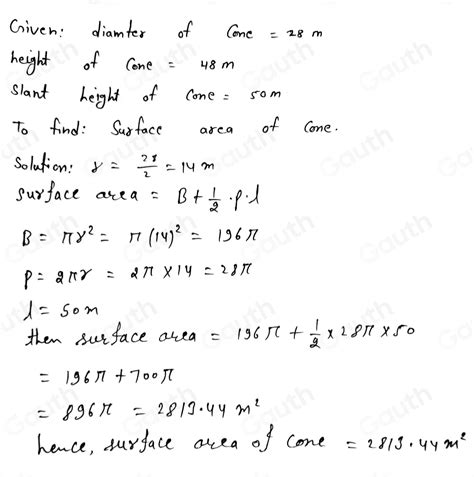 Given: diamter of Cone = 28 m
height of Cone = 48 m
Slant height of Cone = 50 m
To find: Surface area of Cone.
Solution: r = 28/2 = 14 m
Surface area = B + 1/2 · p · l
B = πr² = π (14)² = 196π
P = 2πr = 2π × 14 = 28π
l = 50 m
then surface area = 196π + 1/2 × 28π × 50
= 196π + 700π
= 896π = 2813.44 m²
hence, surface area of Cone = 2813.44 m²